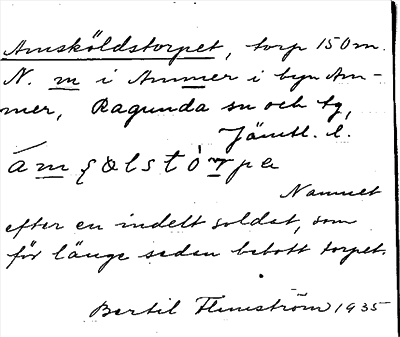 Amsköldstorpet, torp 150 m.
N. m i Ammer i byn Am-
mer, Ragunda sn och tg,
Jämtl. l.
ámʂœlstòrpa
Namnet
efter en indelt soldat, som
för länge sedan bebott torpet.
Bertil Flemström 1935